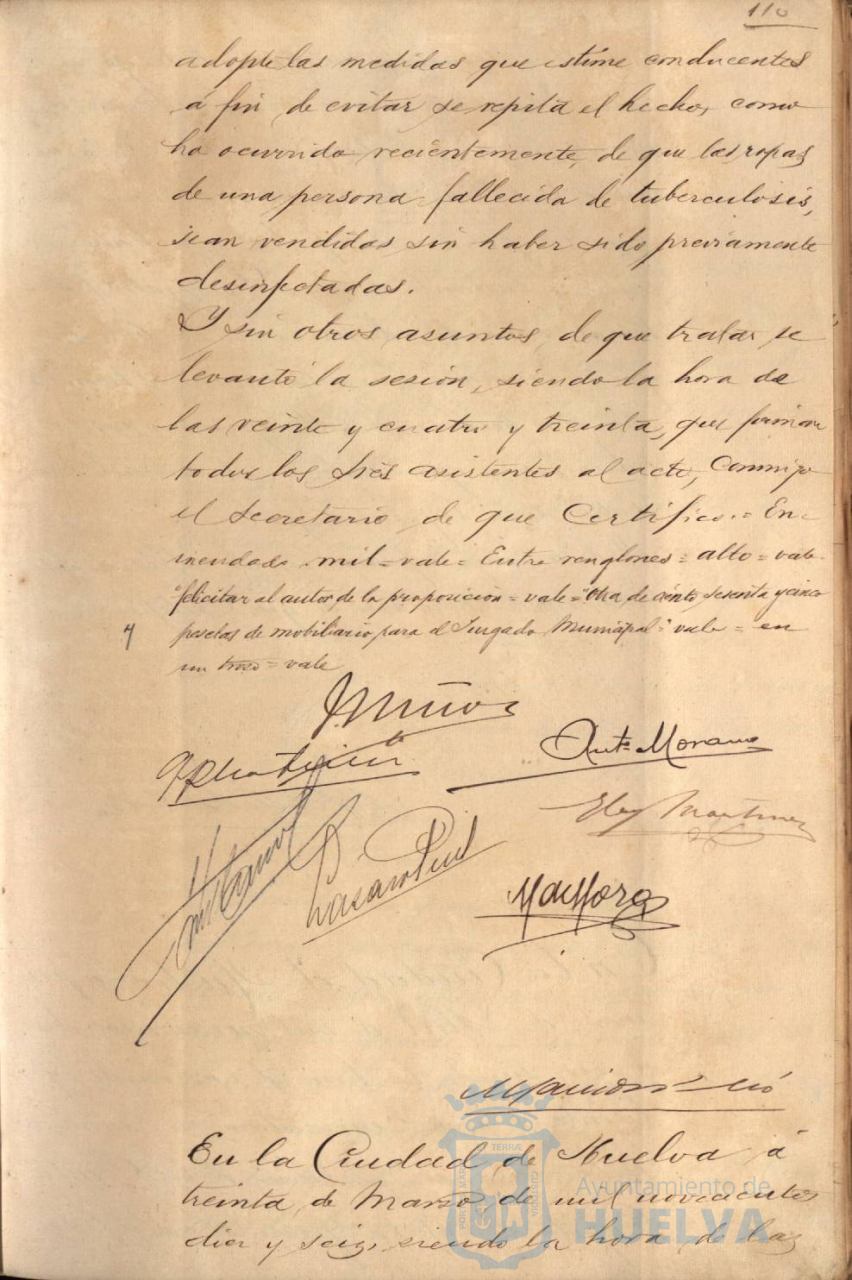 110
adopte las medidas que estime conducentes
á fin de evitar se repita el hecho, como
ha ocurrido recientemente, de que las ropas
de una persona fallecida de tuberculosis,
sean vendidas sin haber sido previamente
desinfectadas.
Y sin otros asuntos de que tratar se
levantó la sesión, siendo la hora de
las veinte y cuatro y treinta, que firman
todos los Sres asistentes al acto, conmigo
el Secretario de que Certifico.= En-
mendado mil=vale= Entre renglones= alto=vale-
felicitar al autor de la proposición=vale="Otra de ciento sesenta y cinco
pesetas de mobiliario para el Juzgado Municipal"=vale= en
un trozo=vale
J. Muñoz
Antº Moreno
Eloy Martinez
Lazaro
En la Ciudad de Huelva á
treinta de Marzo de mil novecientos
diez y seis, siendo la hora de las
Ayuntamiento de
HUELVA